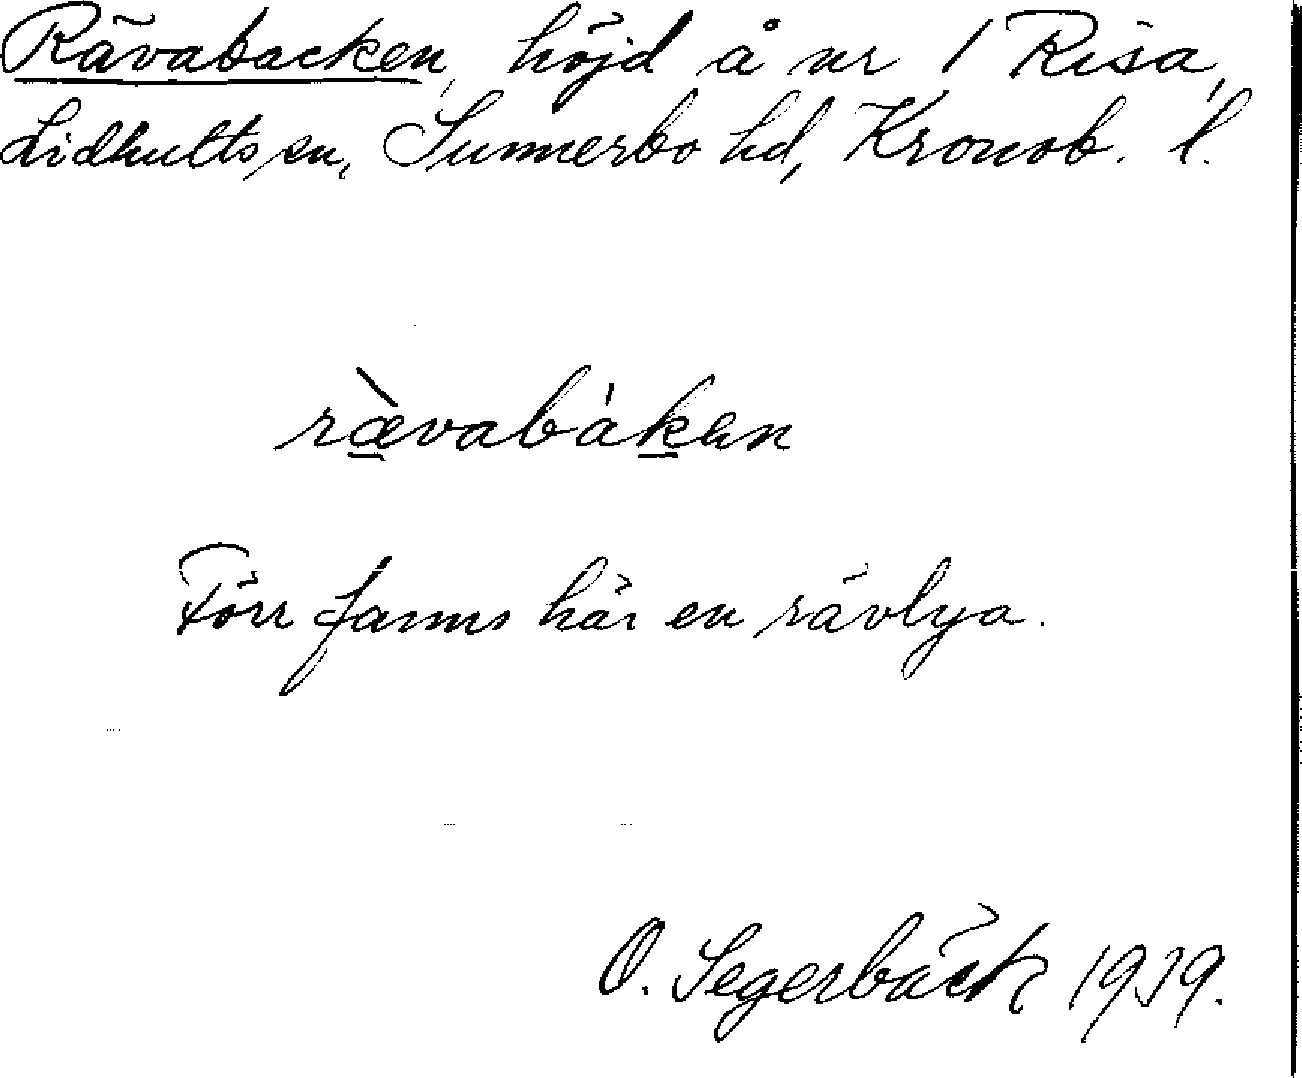 Rävabacken, höjd å nr 1 Risa,
Lidhults sn, Sunnerbo hd, Kronob. l.
rævabáken
Förr fanns här en rävlya.
O. Segerbäck 1939.